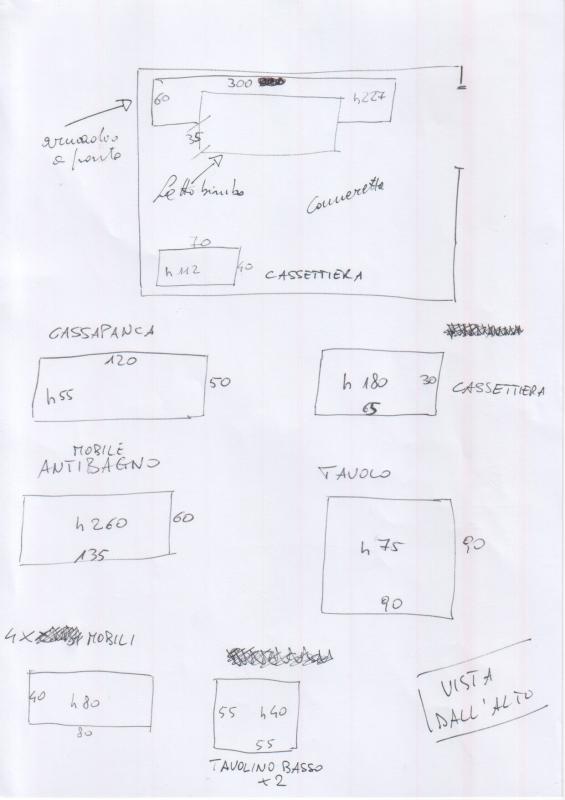 300
60
h227
armadio
a ponte
35
Letto bimbo
Cameretta
70
h112
40
CASSETTIERA
CASSAPANCA
120
h55
50
h 180
30
65
CASSETTIERA
MOBILE
ANTIBAGNO
h 260
60
135
TAVOLO
h 75
90
90
4x MOBILI
40
h 80
80
55
h40
55
TAVOLINO BASSO
x2
VISTA
DALL'ALTO